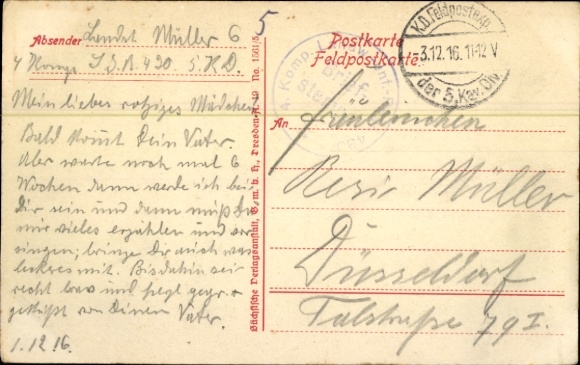 Absender Landst Müller 6
4 Komp. L.I.R. 430. 5. K.D.
Mein liebes rotziges Mädchen!
Bald kommt Dein Vater.
Aber warte noch mal 6
Wochen dann werde ich bei
Dir sein und dann mußt Du
mir vieles erzählen und vor
singen; bringe Dir auch was
leckeres mit. Bis dahin sei
recht brav und
geküßt von Deinem Vater.
1.12.16.
Sächsische Verlagsanstalt, G. m. b. H., Dresden-A. 19 No. 1561/5
5
Postkarte
Feldpostkarte
K.D. Feldpostexp.
3.12.16. 11-12 V
der 5. Kav. Div.
4. Komp.
Brief
An Fräuleinchen
Resi Müller
Düsseldorf
Talstraße 79 I.